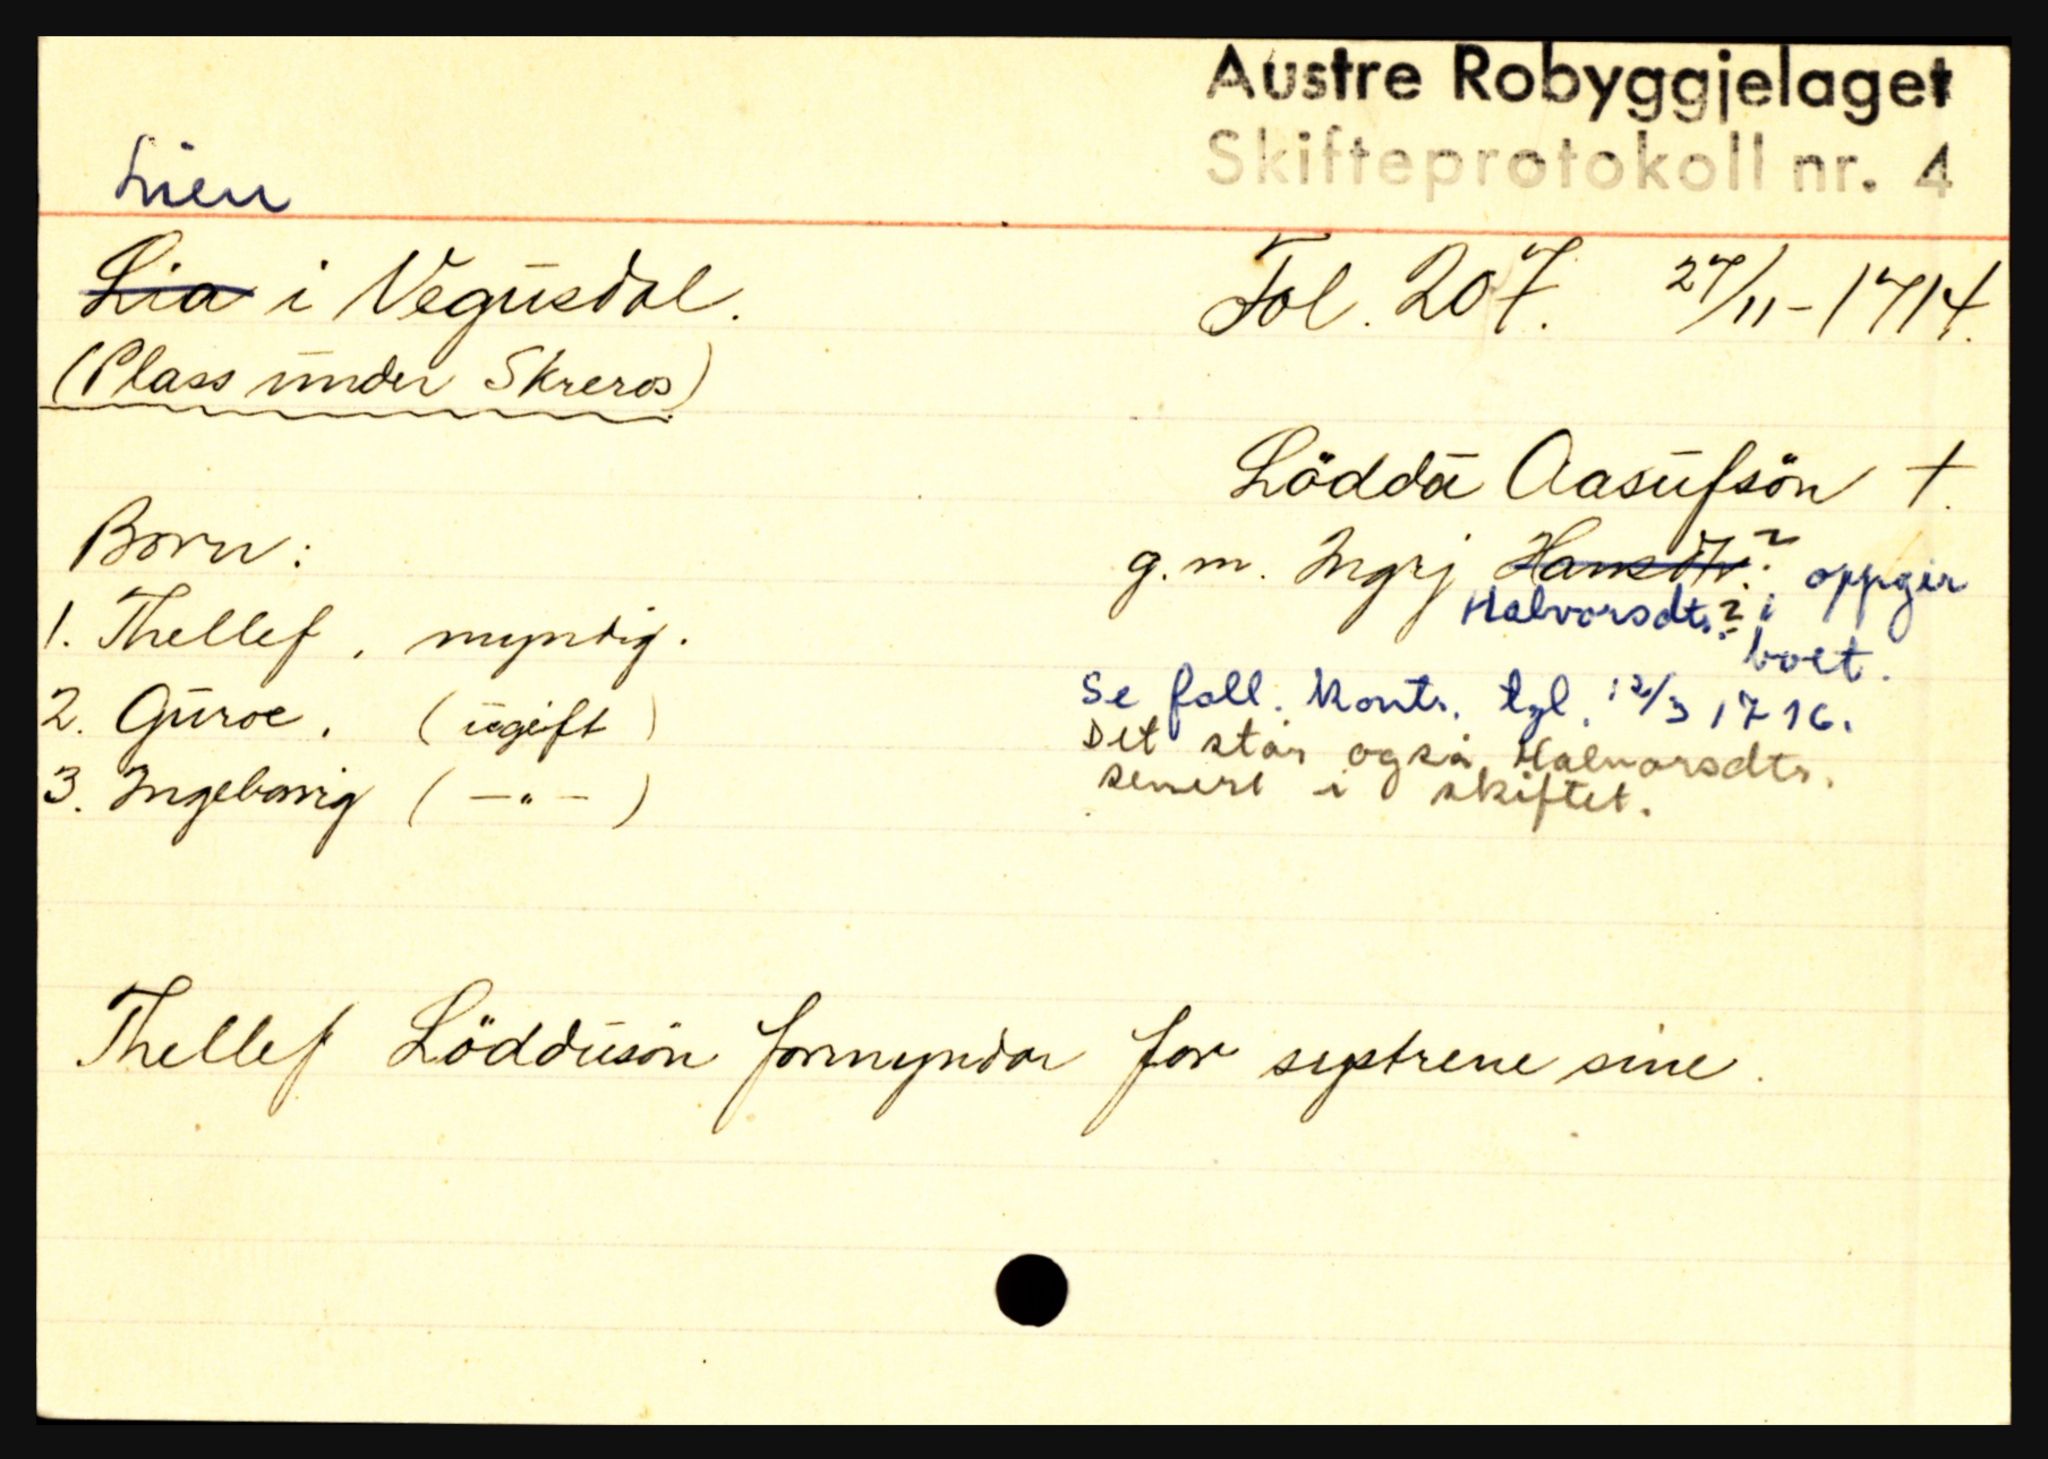 Austre Robyggjelaget
Skifteprotokoll nr. 4
Lien
Lia i Vegusdal.
Fol. 207. 27/11-1714.
(Plass under Skreros)
Lödda Aasufsön †.
g. m. Ingrj Hansdtr.? oppgir
Halvorsdtr.? i
boet.
Se fall. kontr. tgl. 12/3 1716.
Det står også Halvorsdtr.
senere i skiftet.
Born:
1. Thellef, myndig.
2. Guroe, (ugift)
3. Ingeborrig (—"—)
Thellef Löddusön formyndar for systrene sine.